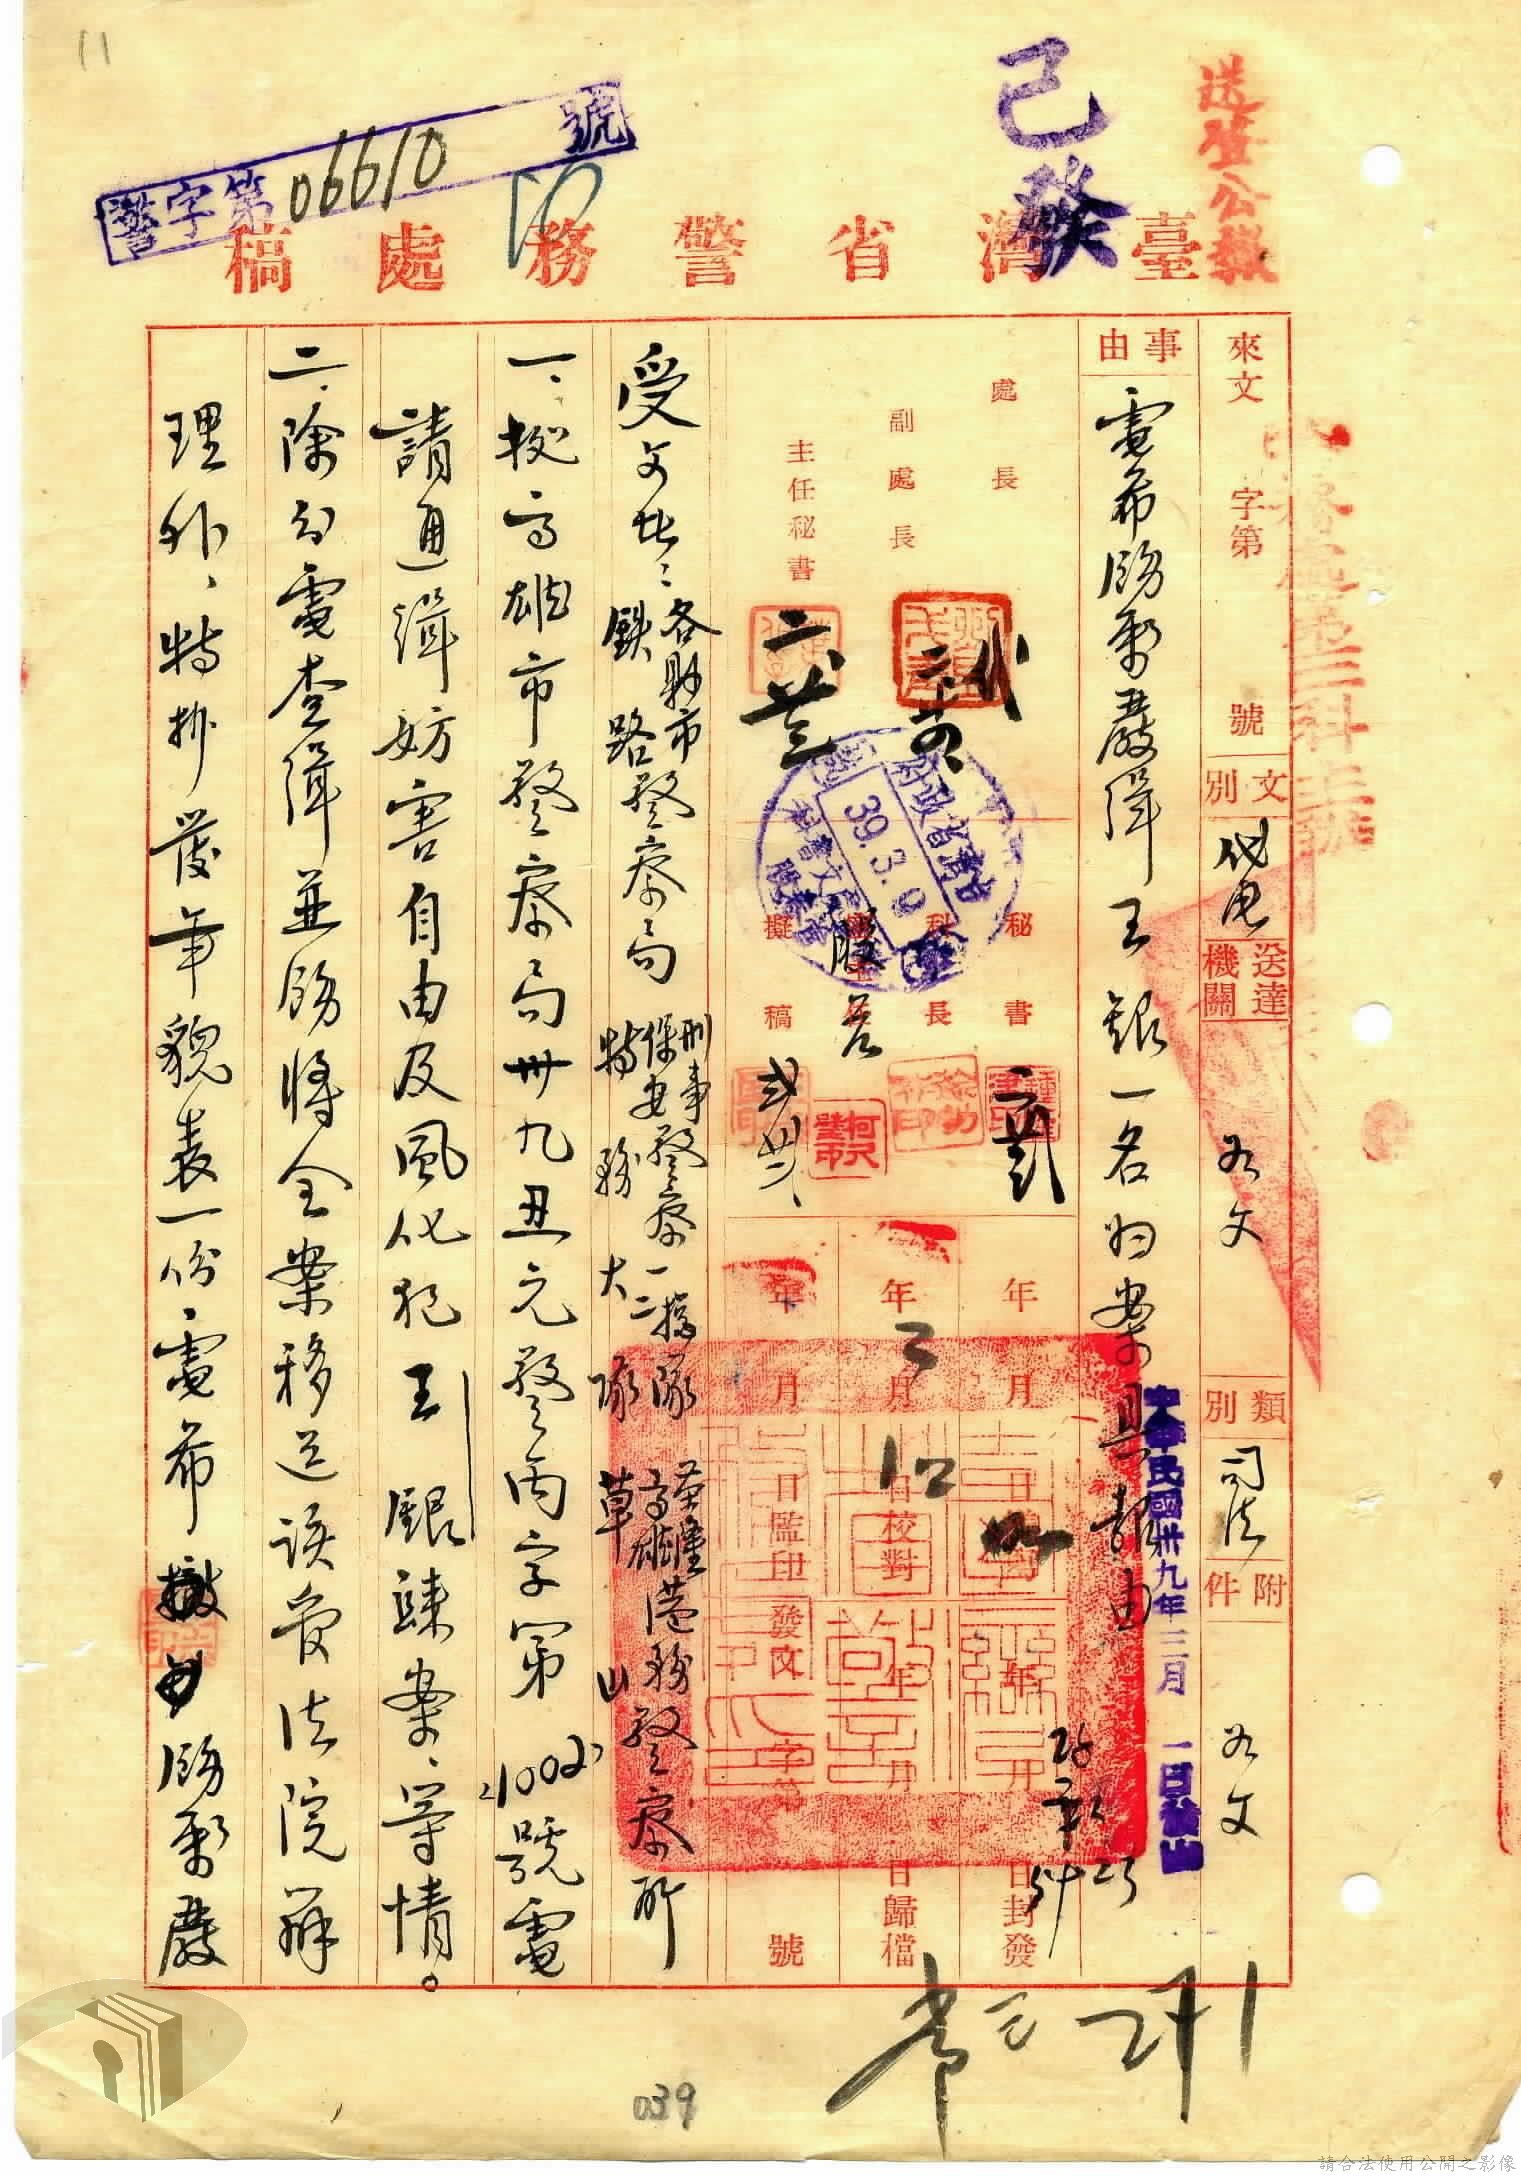 11
送登公報
已發
警字第06610號
臺灣省警務處稿
來文 字第 號
文別 代电
送達機關 如文
類別 司法
附件 如文
事由
電希飭屬嚴緝王銀一名归案具報由
中華民國卅九年三月一日發出
處長
副處長
主任秘書
秘書
科長
擬稿
39.3.
年 月 日 封發
年 月 日 校對
年 月 日 歸檔
年 月 日 監印
發文 字第 號
受文者：各縣市警察局 鉄路警察局 刑事警察 保安警察一二總隊 特務大隊 基隆高雄港務警察所 草山警察所
一、据高雄市警察局卅九丑元警丙字第21002號電
請通緝妨害自由及風化犯王銀誄案、等情。
二、除分電查緝並飭將全案移送該管法院辦
理外、特抄發年貌表一份、電希飭屬嚴
039
請合法使用公開之影像